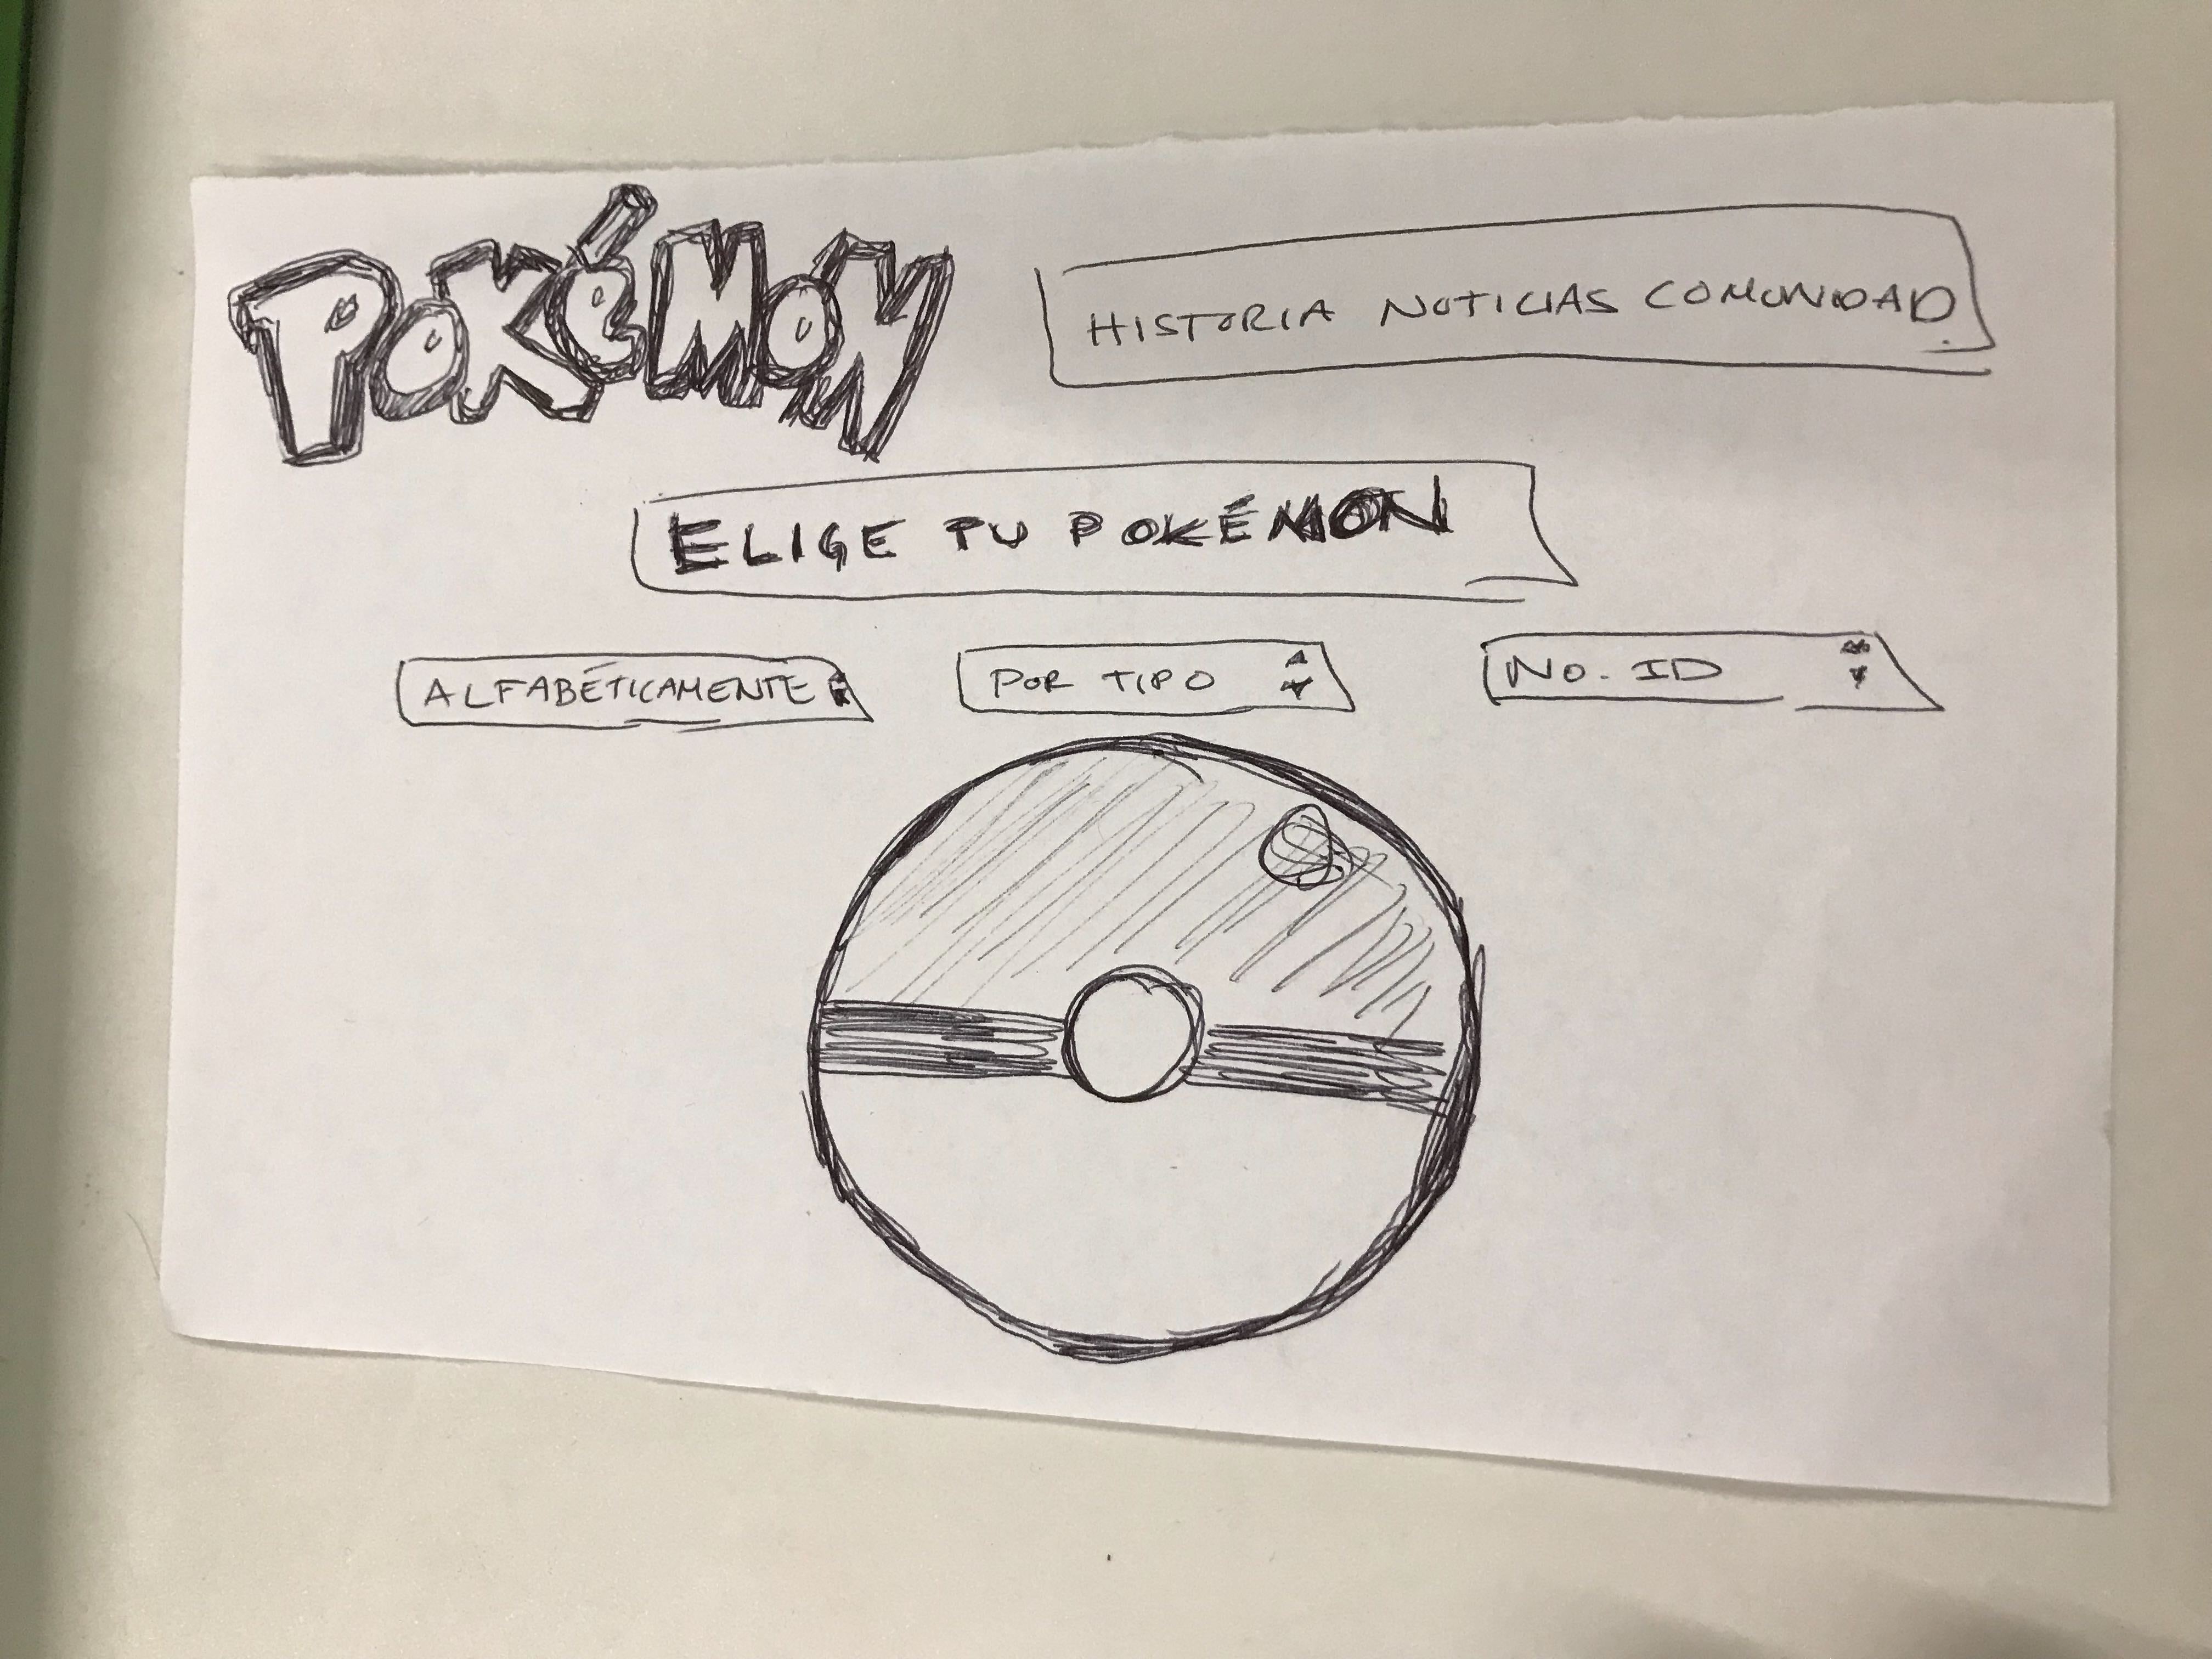 POKéMON
HISTORIA NOTICIAS COMUNIDAD
ELIGE TU POKÉMON
ALFABÉTICAMENTE
POR TIPO
NO. ID